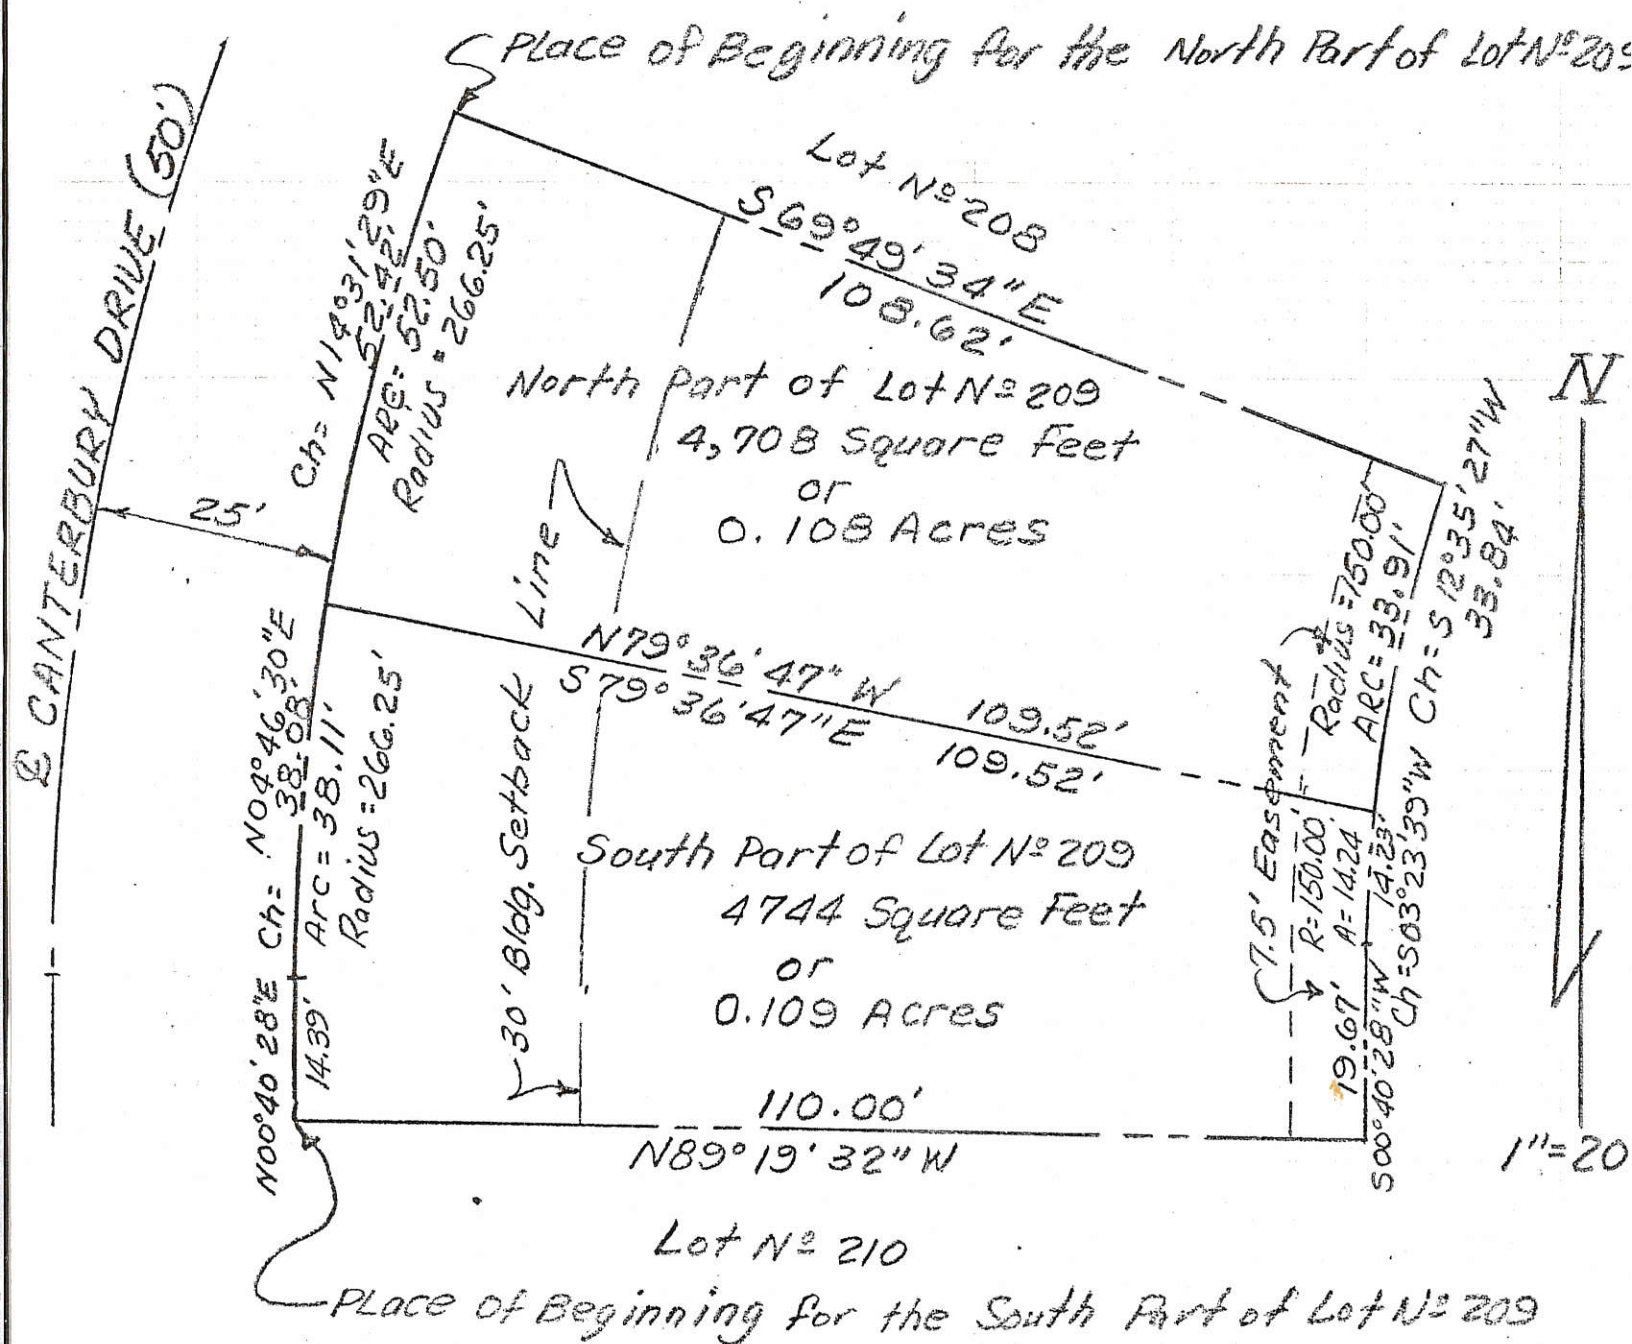 Place of Beginning for the North Part of Lot Nº 209
℄ CANTERBURY DRIVE (50')
25'
Lot Nº 208
S 69° 49' 34" E
108.62'
Ch= N14°31'29"E
52.42'
ARC= 52.50'
Radius = 266.25'
North Part of Lot Nº 209
4,708 Square Feet
or
0.108 Acres
N
Radius = 150.00'
ARC= 33.91'
Ch= S 12°35'27"W
33.84'
N79°36'47" W 109.52'
S 79°36'47"E 109.52'
30' Bldg. Setback Line
N00°40'28"E Ch= N04°46'30"E
14.39' 38.08'
Arc = 38.11'
Radius = 266.25'
South Part of Lot Nº 209
4744 Square Feet
or
0.109 Acres
7.5' Easement
R=150.00'
A=14.24
19.67' 14.23'
S00°40'28"W
Ch=S03°23'39"W
110.00'
N89°19'32" W
1"=20
Lot Nº 210
Place of Beginning for the South Part of Lot Nº 209